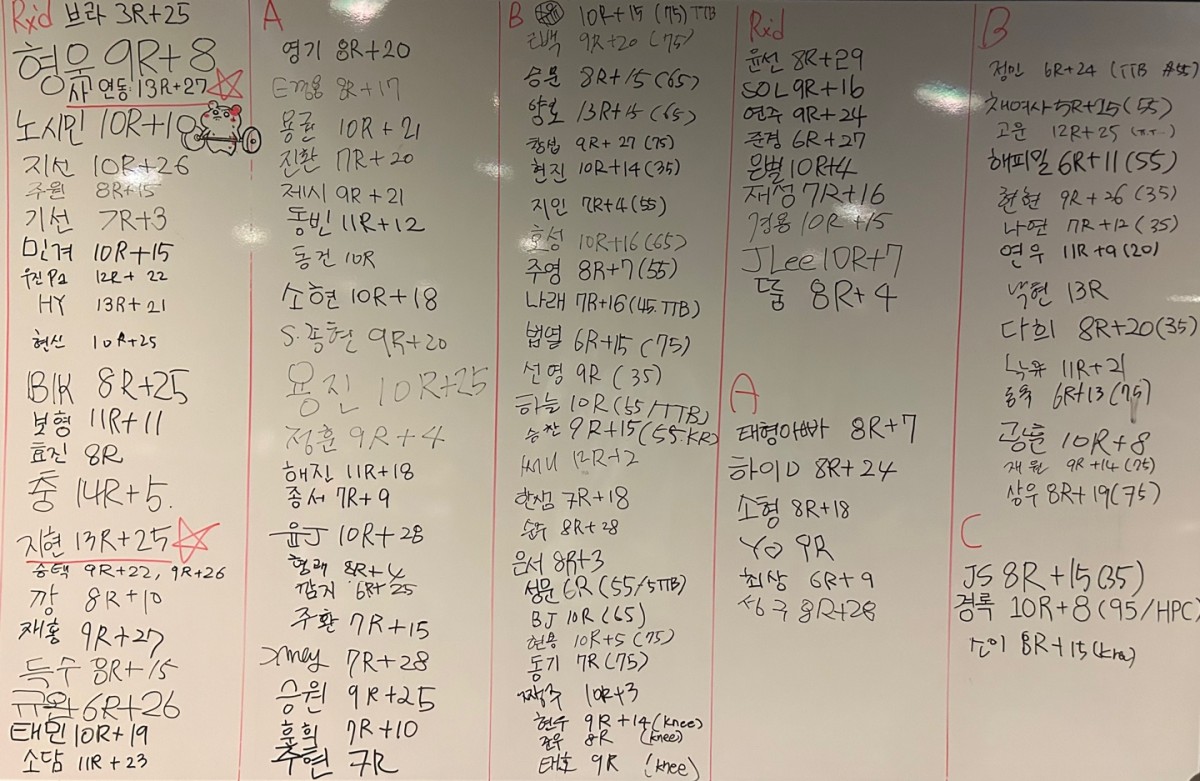 Rx'd
브라 3R+25
형욱 9R+8
사연동 13R+27
노시민 10R+10
지선 10R+26
주원 8R+15
기선 7R+3
민겨 10R+15
우진Pa 12R+22
HY 13R+21
현신 10R+25
BK 8R+25
보형 11R+11
효진 8R
중 14R+5.
지현 13R+25
승택 9R+22, 9R+26
깡 8R+10
재홍 9R+27
득수 8R+15
규완 6R+26
태민 10R+19
소담 11R+23
A
영기 8R+20
E깡용 8R+17
몽글 10R+21
진환 7R+20
제시 9R+21
동빈 11R+12
동건 10R
소현 10R+18
S.종현 9R+20
용진 10R+25
정훈 9R+4
해진 11R+18
종서 7R+9
윤J 10R+28
형래 8R+4
깜지 6R+25
주환 7R+15
7R+28
승원 9R+25
홍희 7R+10
주현 7R
B
10R+15 (75) TTB
9R+20 (75)
승문 8R+15(65)
양보 13R+15 (65)
창섭 9R+27 (75)
현진 10R+14(35)
지인 7R+4(55)
효성 10R+16(65)
주영 8R+7(55)
나래 7R+16(45.TTB)
법열 6R+15 (75)
선영 9R (35)
하늘 10R(55/TTB)
승찬 9R+15(55.KR)
써니 12R+2
한샘 7R+18
승주 8R+28
은서 8R+3
성문 6R(55/5TTB)
BJ 10R(65)
현용 10R+5 (75)
동기 7R(75)
짱주 10R+3
현수 9R+14(knee)
준우 8R (knee)
태호 9R (knee)
Rxd
윤선 8R+29
SOL 9R+16
연주 9R+24
준경 6R+27
은별 10R+4
재성 7R+16
경용 10R+15
JLee 10R+7
뚬 8R+4
A
태형아빠 8R+7
하이D 8R+24
소형 8R+18
YO 9R
최상 6R+9
성국 8R+28
B
정민 6R+24 (TTB #55)
채여사 5R+25(55)
고운 12R+25
해피밀 6R+11(55)
현현 9R+26 (35)
나연 7R+12 (35)
연우 11R+9(20)
낙현 13R
다희 8R+20(35)
녹유 11R+21
동욱 6R+13(75)
공룡 10R+8
재원 9R+14(75)
상우 8R+19(75)
C
JS 8R+15(35)
경록 10R+8(95/HPC)
손이 8R+15(kne)